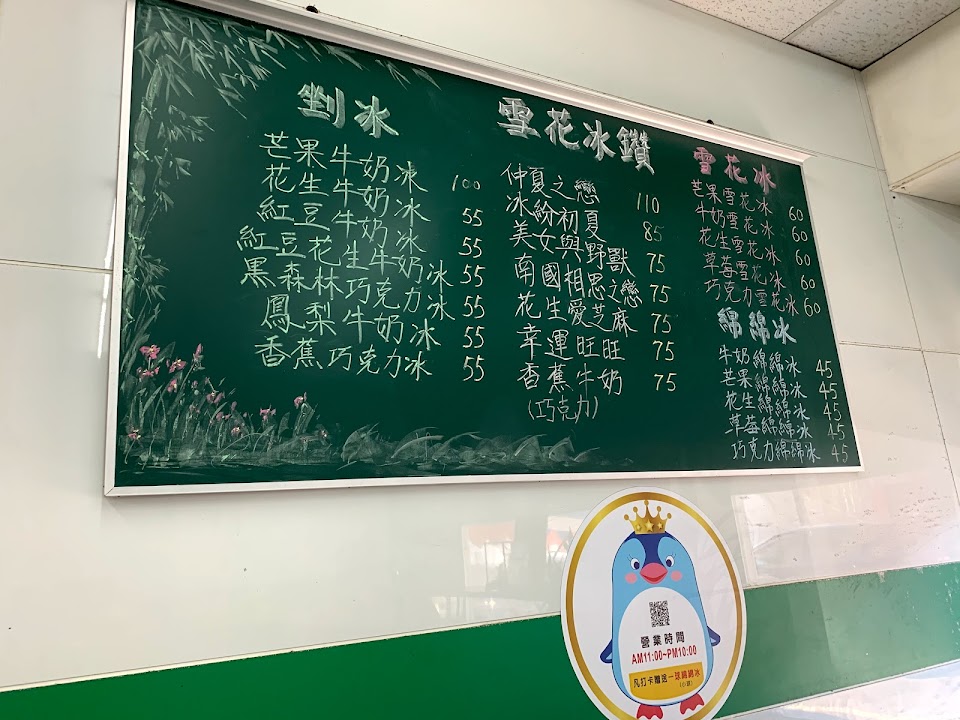 剉冰
芒果牛奶冰 100
花生牛奶冰 55
紅豆牛奶冰 55
紅豆花生牛奶冰 55
黑森林巧克力冰 55
鳳梨牛奶冰 55
香蕉巧克力冰 55
雪花冰鑽
仲夏之戀 110
冰紛初夏 85
美女與野獸 75
南國相思之戀 75
花生愛芝麻 75
幸運旺旺 75
香蕉牛奶 75
(巧克力)
雪花冰
芒果雪花冰 60
牛奶雪花冰 60
花生雪花冰 60
草莓雪花冰 60
巧克力雪花冰 60
綿綿冰
牛奶綿綿冰 45
芒果綿綿冰 45
花生綿綿冰 45
草莓綿綿冰 45
巧克力綿綿冰 45
營業時間
AM11:00~PM10:00
凡打卡贈送一球綿綿冰